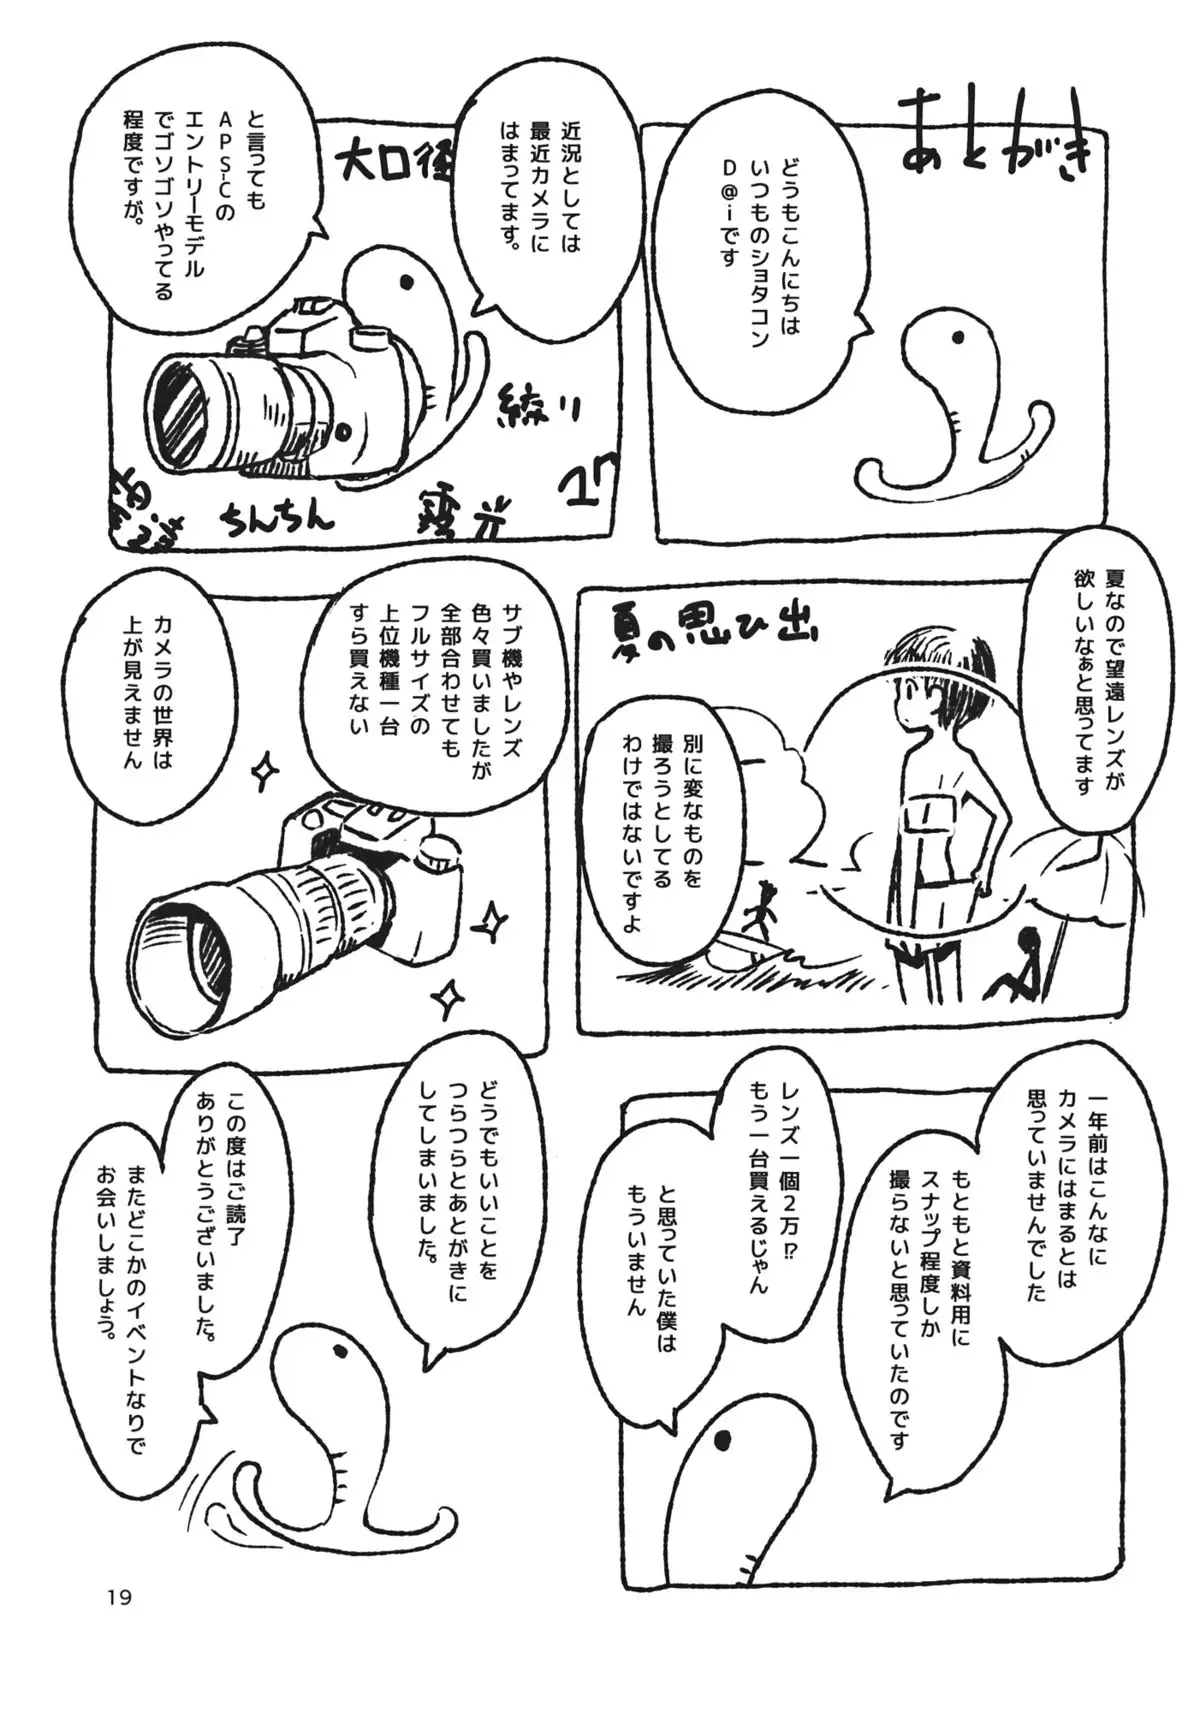 あとがき
どうもこんにちは
いつものショタコン
D@iです
近況としては
最近カメラに
はまってます。
と言っても
APSCの
エントリーモデル
でゴソゴソやってる
程度ですが。
大口径
絞り
ちんちん
夏なので望遠レンズが
欲しいなぁと思ってます
夏の思ひ出
別に変なものを
撮ろうとしてる
わけではないですよ
サブ機やレンズ
色々買いましたが
全部合わせても
フルサイズの
上位機種一台
すら買えない
カメラの世界は
上が見えません
一年前はこんなに
カメラにはまるとは
思っていませんでした
もともと資料用に
スナップ程度しか
撮らないと思っていたのです
レンズ一個2万⁉
もう一台買えるじゃん
と思っていた僕は
もういません
どうでもいいことを
つらつらとあとがきに
してしまいました。
この度はご読了
ありがとうございました。
またどこかのイベントなりで
お会いしましょう。
19